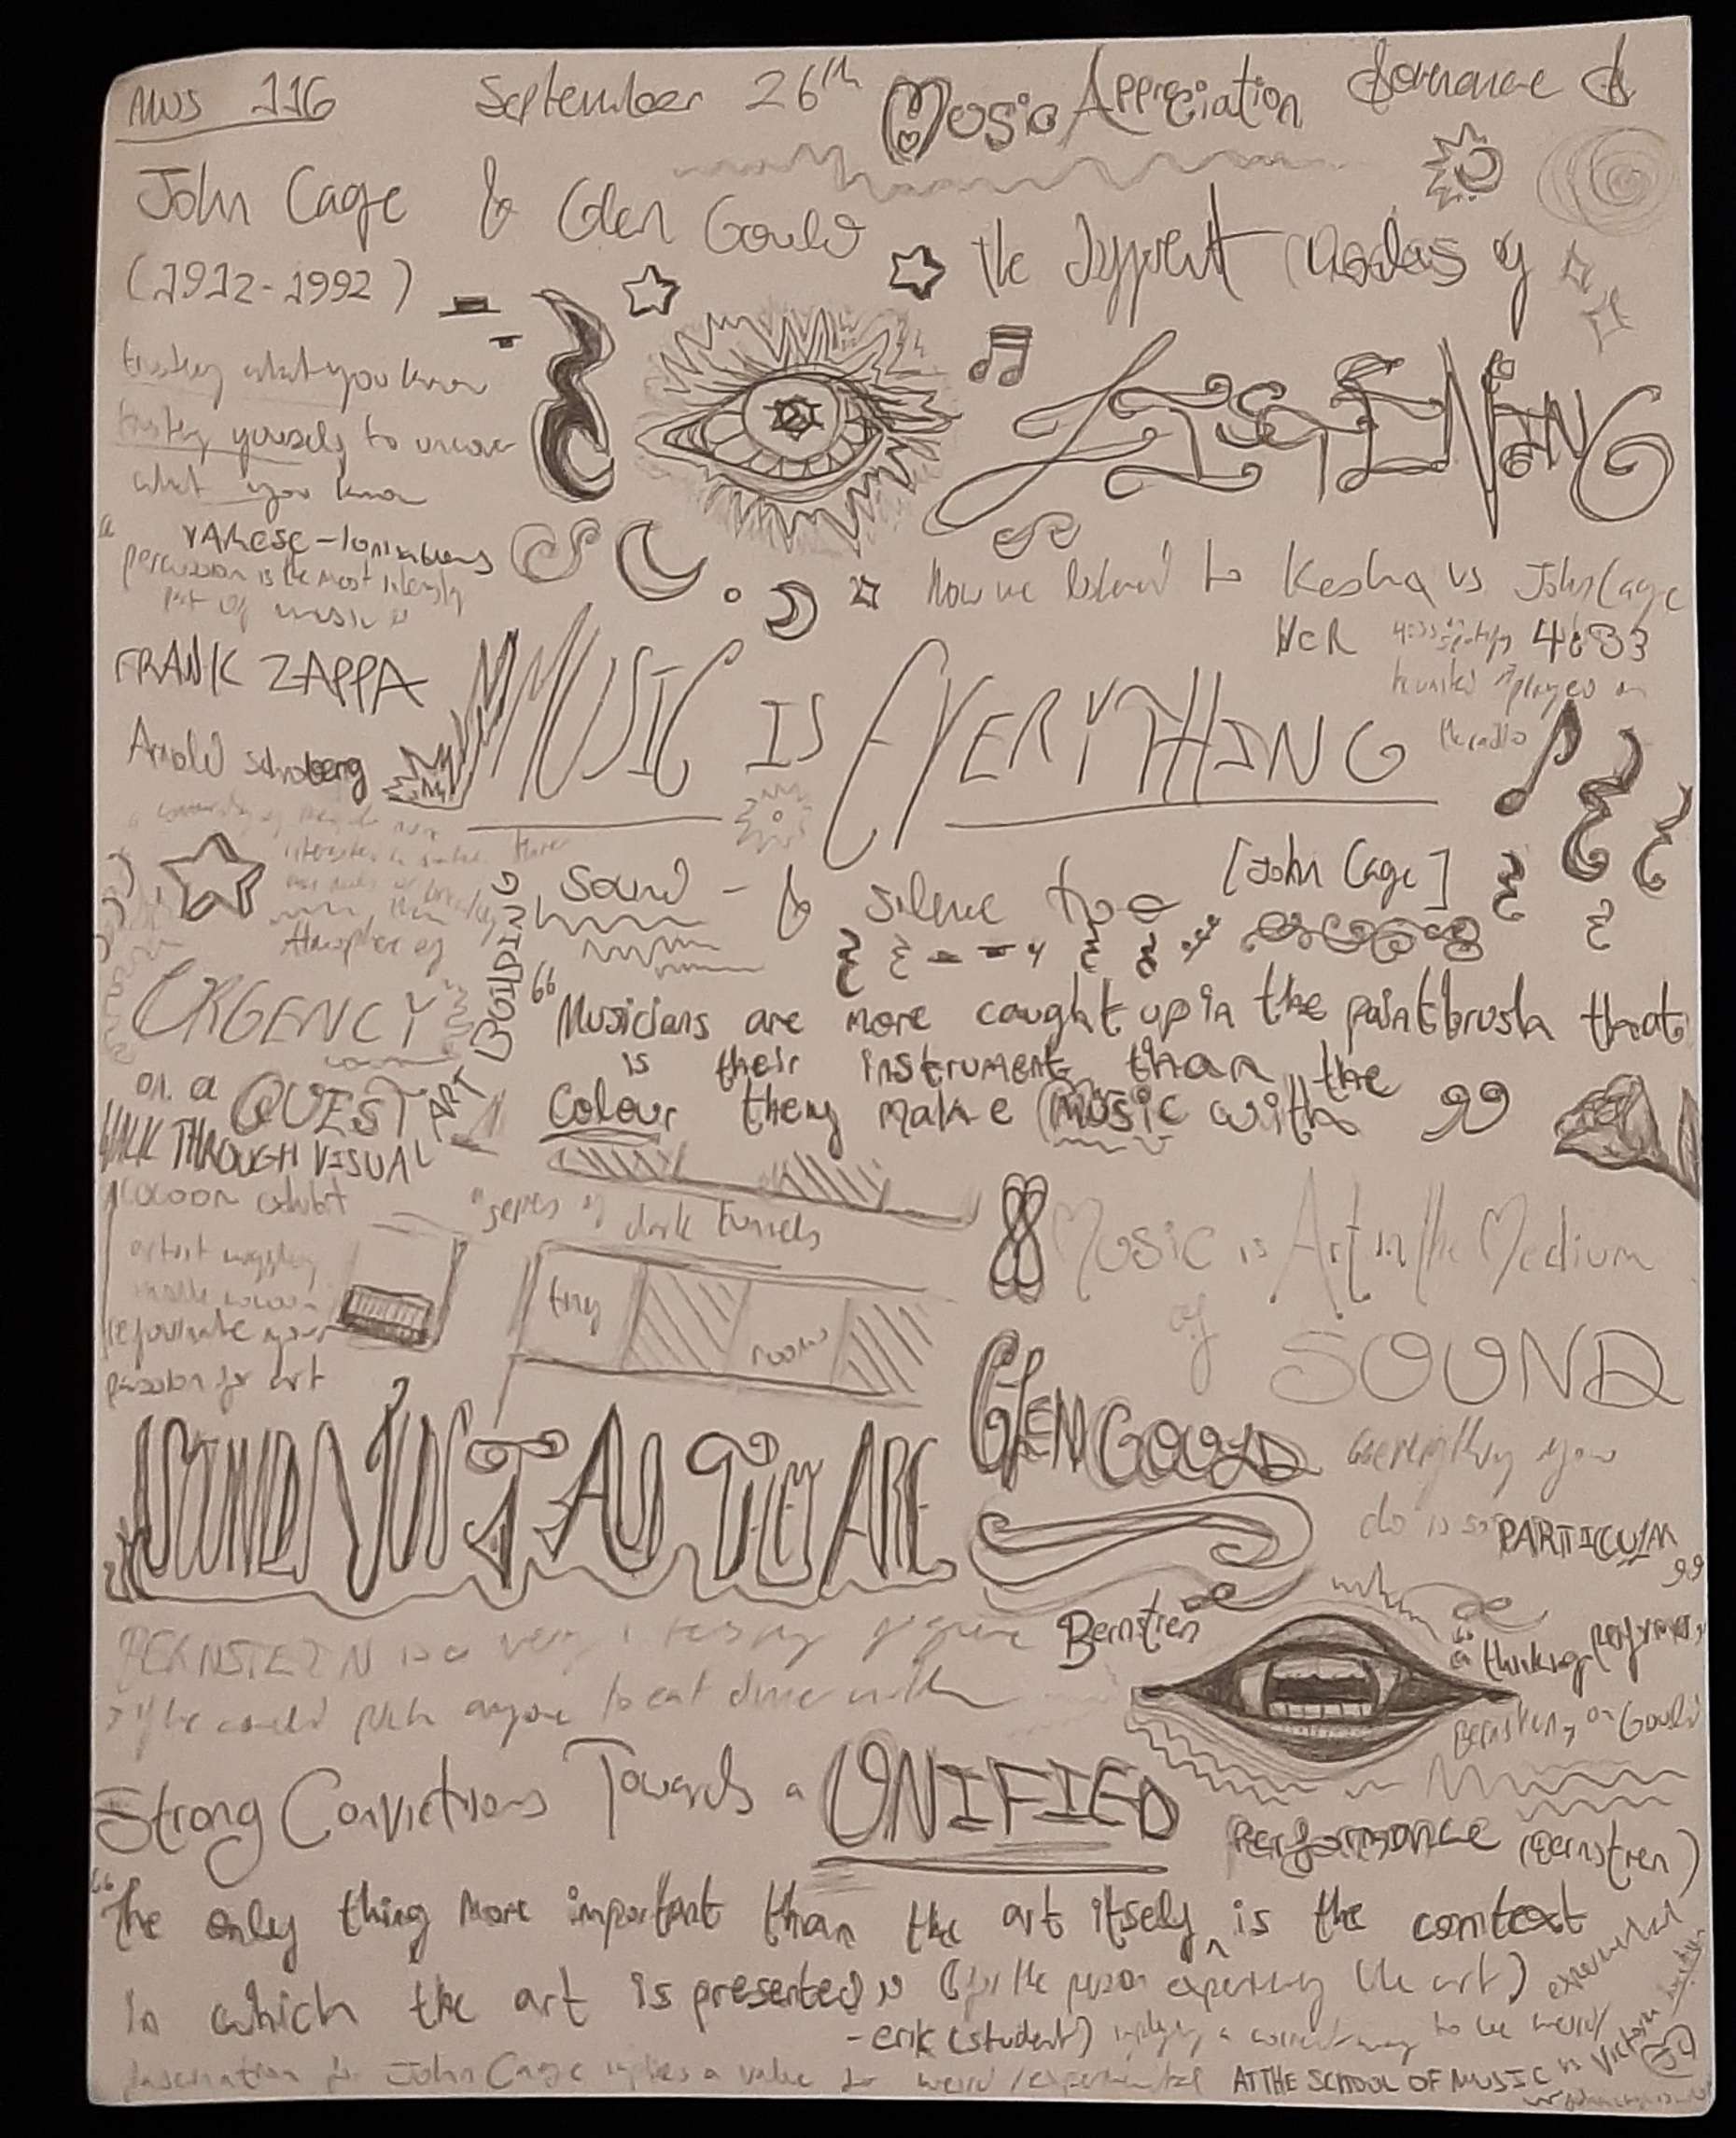 MUS 116 September 26th Music Appreciation
John Cage & Glen Gould
the of
(1912-1992)
LISTENING
trusting what you know
trusting yourself to uncover
what you know
VARESE - Ionisations
percussion is the most
part of music
How we listened to Kesha vs John Cage
4:33
played on
the radio
FRANK ZAPPA
Arnold
MUSIC IS EVERYTHING
Sound - & silence too [John Cage]
URGENCY
on a QUEST
"Musicians are more caught up in the paintbrush that
is their instrument than the
colour they make music with"
WALK THROUGH VISUAL ART BUILDING
cocoon exhibit
"series of dark tunnels
tiny room
artist
inside cocoon
your
passion for art
Music is Art in the Medium
of SOUND
SOUNDS JUST AS THEY ARE
GLEN GOULD
everything you
do is so PARTICULAR"
BERNSTEIN is a very figure
> if he could pick anyone to eat dinner with
Bernstien
"a thinking performer,"
on Gould
Strong Convictions Towards a UNIFIED
Performance (Bernstien)
"The only thing more important than the art itself, is the context
in which the art is presented" (for the person experiencing the art)
- erik (student) implying a correct way to be weird/
experimental
fascination for John Cage implies a value for weird/experimental AT THE SCHOOL OF MUSIC in Victoria